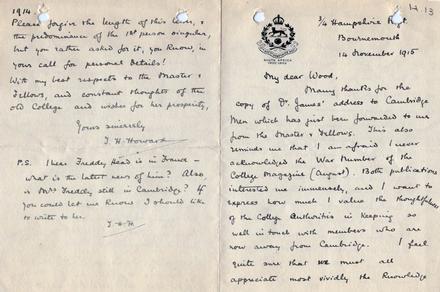 1914
Please forgive the length of this letter, &
the predominance of the 1st person singular,
but you rather asked for it, you know, in
your call for personal details!
With my best respects to the Master &
Fellows, and constant thoughts of the
old College and wishes for her prosperity,
Yours sincerely
J. H. Howard
P.S. I hear Freddy Head is in France –
what is the latest news of him? Also,
is Mrs Freddy still in Cambridge? If
you could let me know I should like
to write to her.
J.H.H.
H.13
3/4 Hampshire Regt.
Bournemouth
14 November 1915
SOUTH AFRICA
My dear Wood,
Many thanks for the
copy of Dr. James' address to Cambridge
Men which has just been forwarded to me
from the Master & Fellows. This also
reminds me that I am afraid I never
acknowledged the War Number of the
College Magazine (August). Both publications
interested me immensely, and I want to
express how much I value the thoughtfulness
of the College Authorities in keeping so
well in touch with members who are
now away from Cambridge. I feel
quite sure that we must all
appreciate most vividly the knowledge